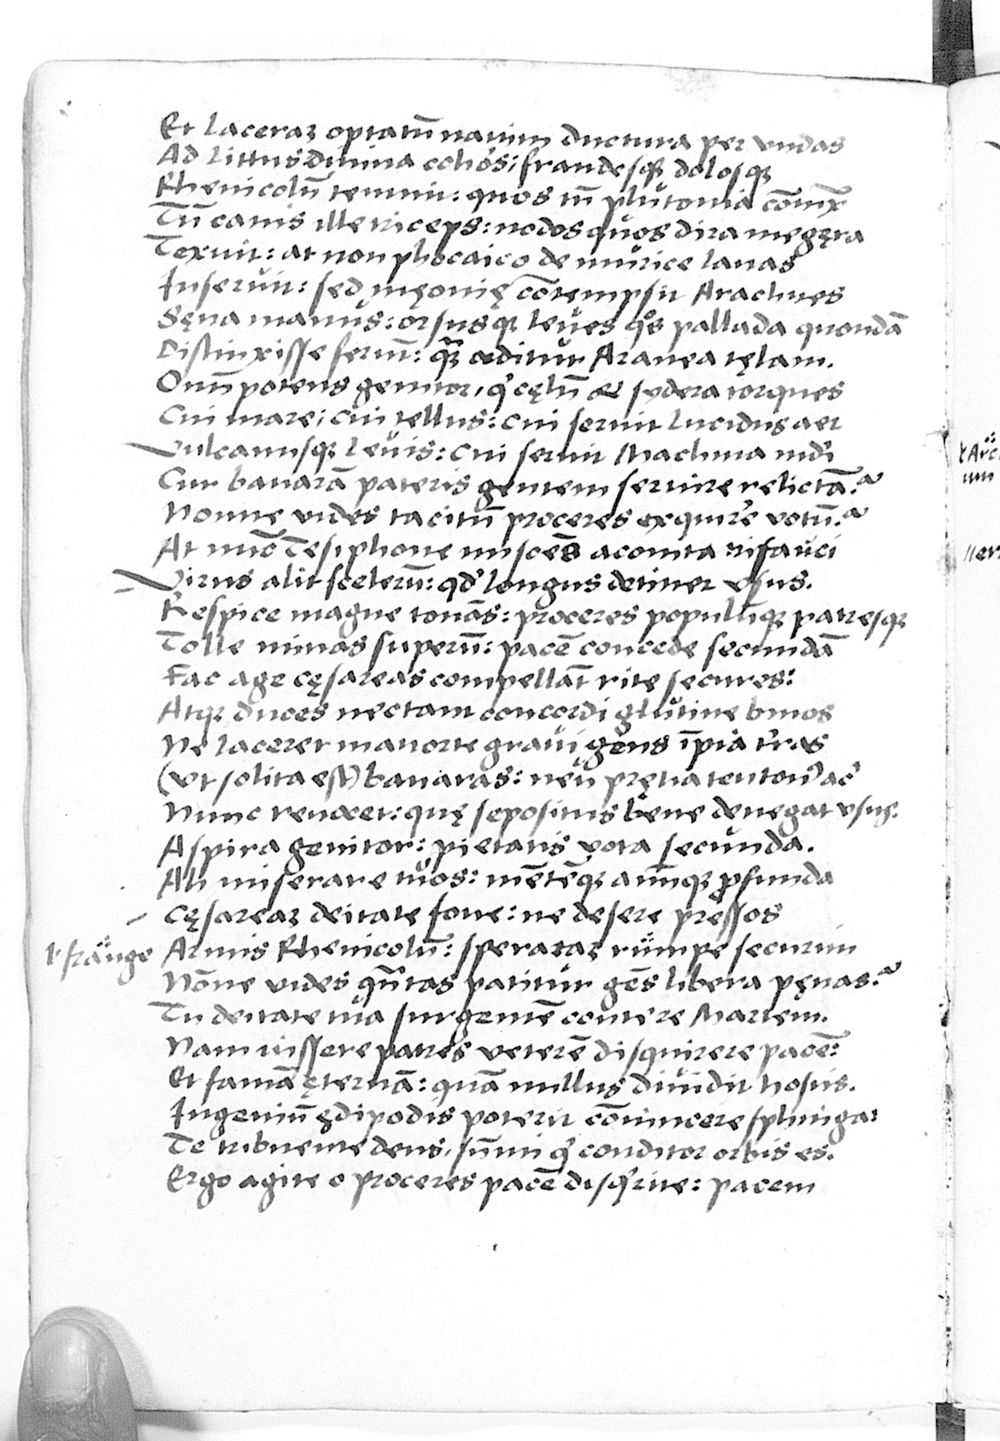 Et laceraʒ optatũ nauim ductura per vndas
Ad littus diuina cohors: fraudesqʒ dolosqʒ
Rhenicolũ temnit: quos tũ plutonia cõiux
Tũ canis ille triceps: nodos quos dira megęra
Texuit: at non phocaico de murice lanas
Inseruit: sed męonię cõtempsit Arachnes
Sęua manus: orsusqʒ leues qͦs pallada quondã
Distinxisse ferũt: qʒ̃ aeditur Aranea tęlam.
Omĩpotens genitor, qͥ cęlũ et sydera torques
Cui mare; cui tellus: cui seruit lucidus aer
Vulcanusqʒ leuis: cui seruit Machina mũdi
Cur bauarã pateris gentem seruire relictã?
Nonne vides tacitũ proceres exquirere votũ?
At nũc Tesiphone miscẽs aconita trifauci
Virus alit scelerũ: qd̓ longus detinet vsus.
Respice magne tonãs: proceres populũqʒ patresqʒ
Tolle minas superũ: pacẽ concede secundã
Fac age cęsareas compellãt rite secures:
Atqʒ duces nectant concordi glutine binos
Ne laceret mauorte graui gens ĩpia t̓ras
(Vt solita est) bauaras: neu pręlia teutonͣ ac̓
Nunc renocet: quę sepositus bene denegat vsus.
Aspira genitor: pietatis vota secunda.
Ah miserare tuos: mẽtẽqʒ animũqʒ ꝓfunda
Cęsareaʒ deitate foue: ne desere pressos
ł frange Armis Rhenicolũ: speratas rumpe securim
Nõne vides qũtas patitur gẽs libera pęnas?
Tu deitate tua surgentẽ contere Martem.
Nam iussere patres veterẽ disquirere pacẽ:
Et famã ęternã: quã nullus diuidit hostis.
Ingeniũ ędipodis poterit cõuincere sphinga:
Te tribuente deus, sũmi qͥ conditor orbis es.
Ergo agite o proceres pacẽ disqͥrite: pacem